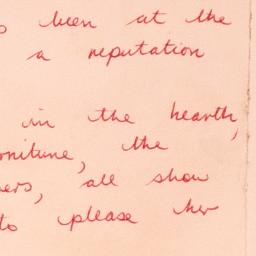 been at the
a reputation
in the hearth,
the
all show
to please her